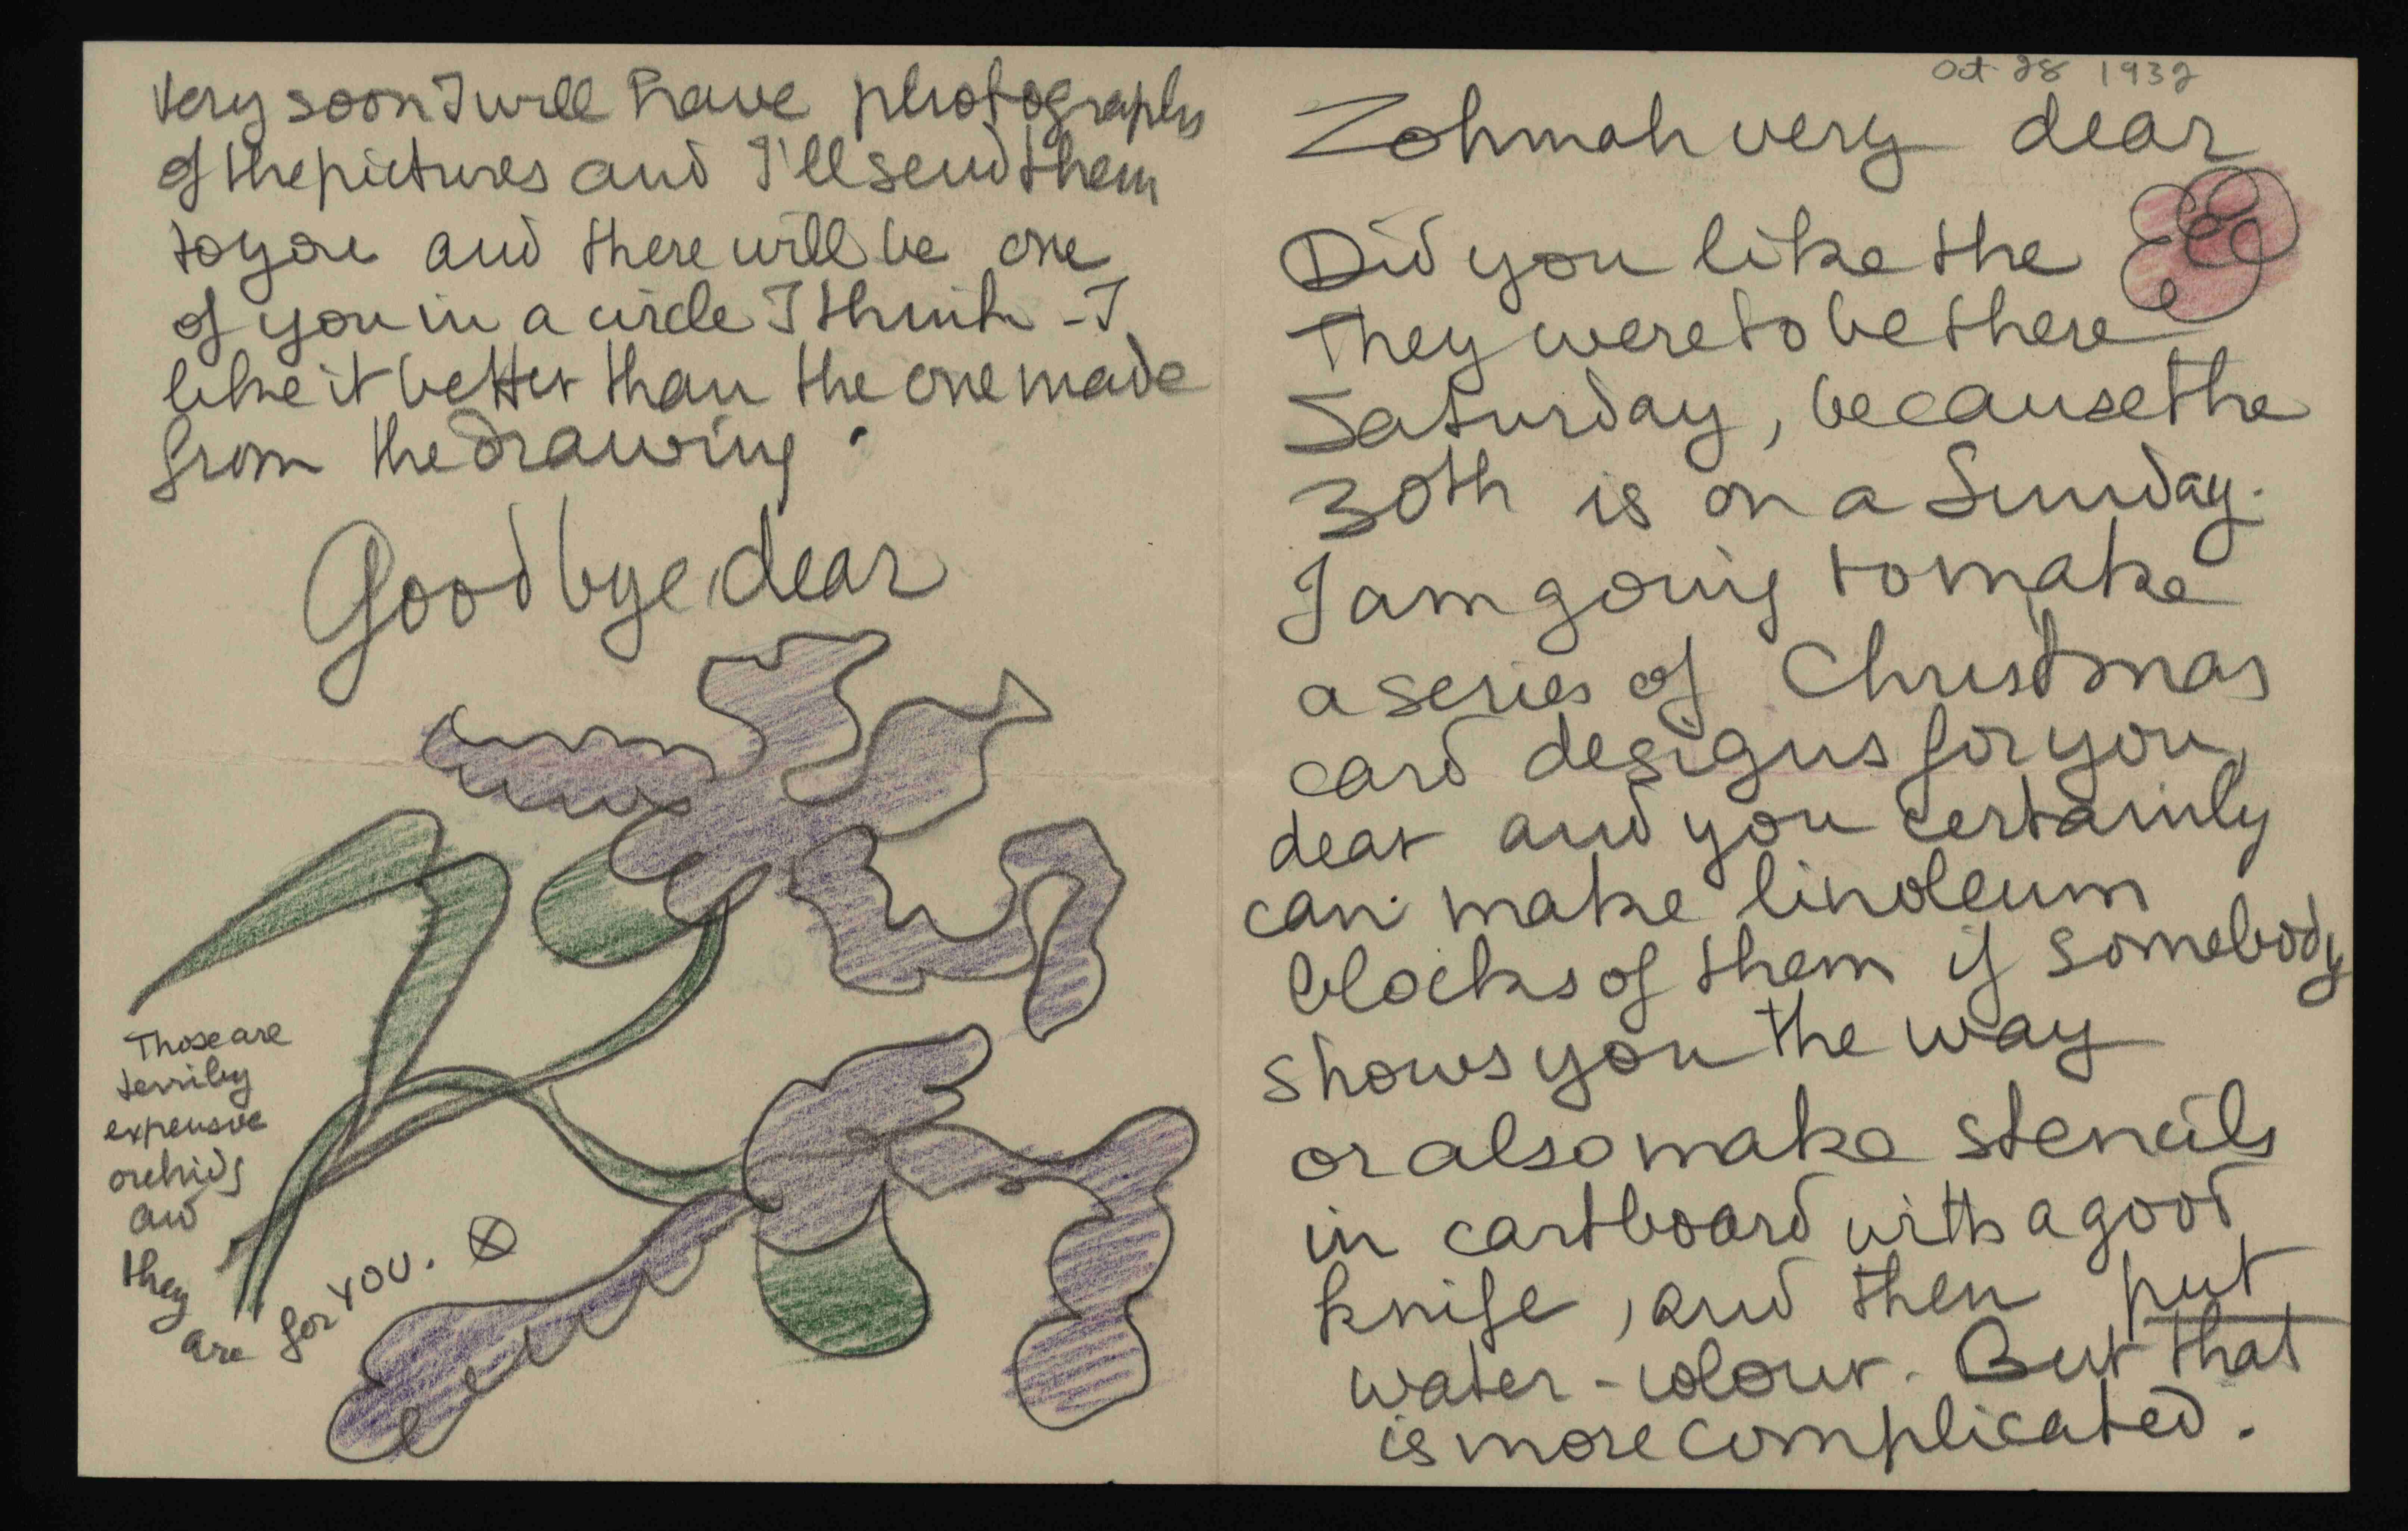 Oct 28 1932
Zohmah very dear
Did you like the
They were to be there
Saturday, because the
30th is on a Sunday.
I am going to make
a series of Christmas
card designs for you,
dear and you certainly
can make linoleum
blocks of them if somebody
shows you the way
or also make stencils
in cartboard with a good
knife, and then put
water-colour. But that
is more complicated.
Very soon I will have photographs
of the pictures and I'll send them
to you and there will be one
of you in a circle I think - I
like it better than the one made
from the drawing.
Goodbye, dear
Those are
terribly
expensive
orchids
and
they
are for YOU.